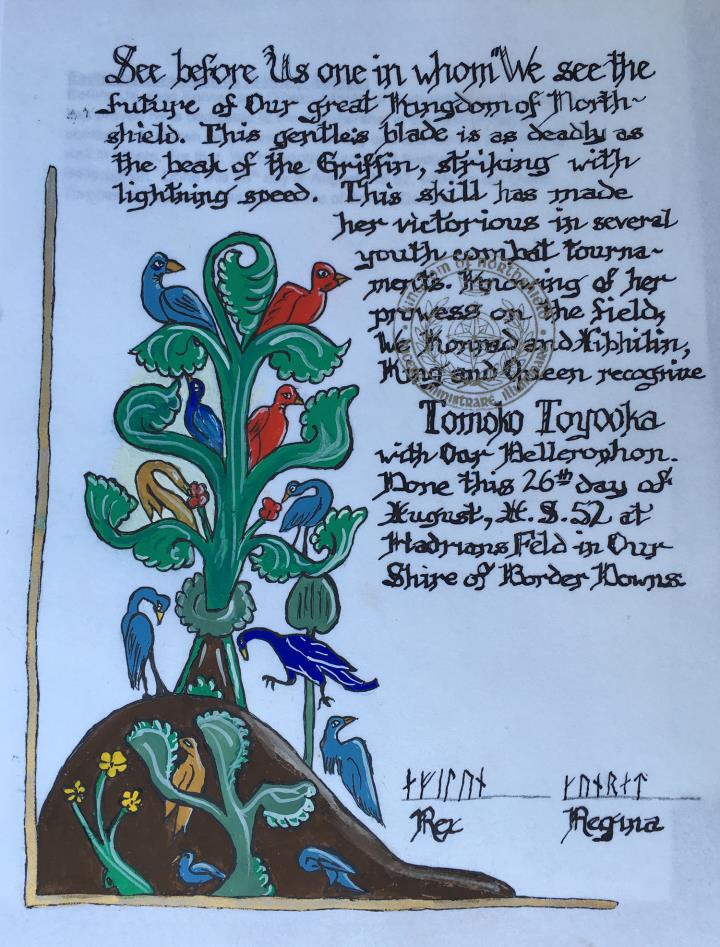 See before Us one in whom We see the
future of Our great Kingdom of North-
shield. This gentle's blade is as deadly as
the beak of the Griffin, striking with
lightning speed. This skill has made
her victorious in several
youth combat tourna-
ments. Knowing of her
prowess on the field,
We Konrad and Aibhilin,
King and Queen recognize
Tomoko Toyooka
with Our Bellerophon.
Done this 26th day of
August, A. S. 52 at
Hadrians Feld in Our
Shire of Border Downs.
ᛅᚠᛁᛚᚢᚾ ᚴᚢᚾᚱᛅᛏ
Rex Regina